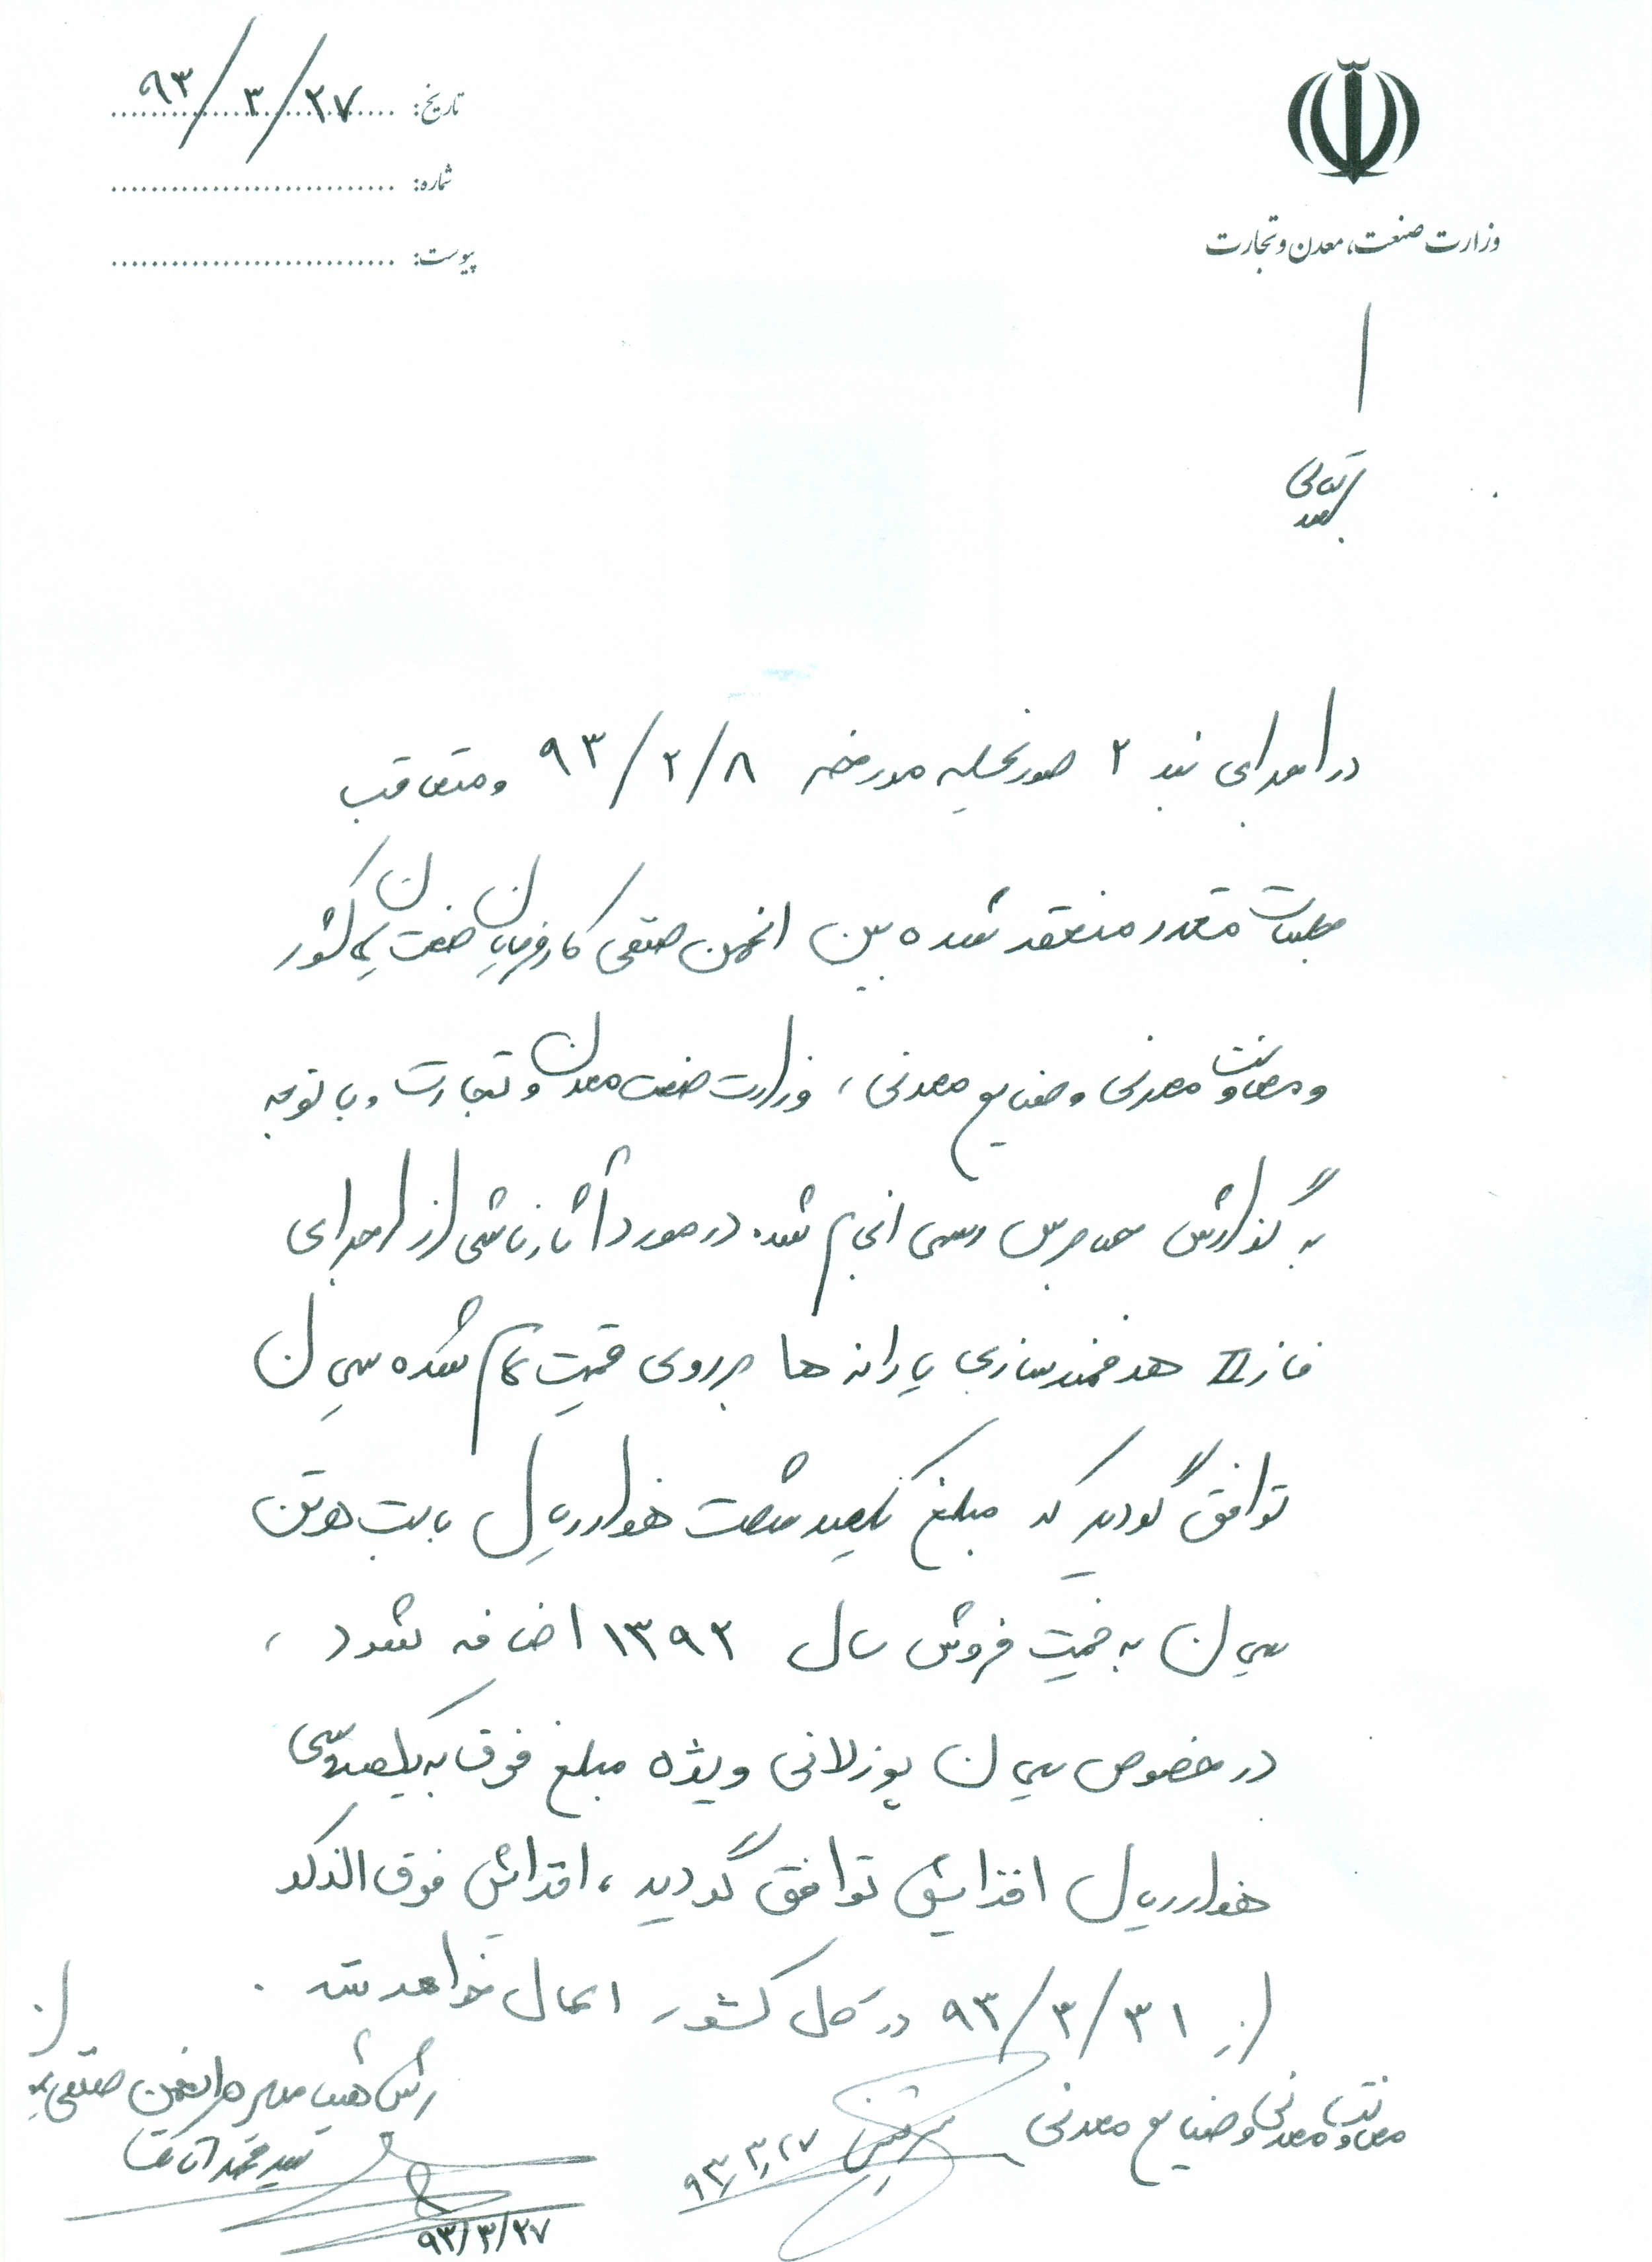 تاریخ: ۹۳/۳/۲۷
شماره:
پیوست:
وزارت صنعت، معدن و تجارت
بسمه تعالی
در اجرای بند ۲ صورتجلسه مورخه ۹۳/۲/۸ و متعاقب
جلسات متعدد منعقد شده بین انجمن صنفی کارفرمایان صنعت سیمان کشور
و معاونت معدنی و صنایع معدنی، وزارت صنعت معدن و تجارت و با توجه
به گزارش حسابرس رسمی انجام شده در مورد آثار ناشی از اجرای
فاز II هدفمندسازی یارانه ها بر روی قیمت تمام شده سیمان
توافق گردید که مبلغ یکصد شصت هزار ریال بابت هر تن
سیمان به قیمت فروش سال ۱۳۹۲ اضافه شود،
در خصوص سیمان پوزلانی ویژه مبلغ فوق به یکصد و سی
هزار ریال افزایش توافق گردید، افزایش فوق الذکر
از ۹۳/۳/۳۱ در کل کشور اعمال خواهد شد.
معاونت معدنی و صنایع معدنی
۹۳/۳/۲۷
رئیس هیات مدیره انجمن صنفی سیمان
سید محمد اتابک
۹۳/۳/۲۷